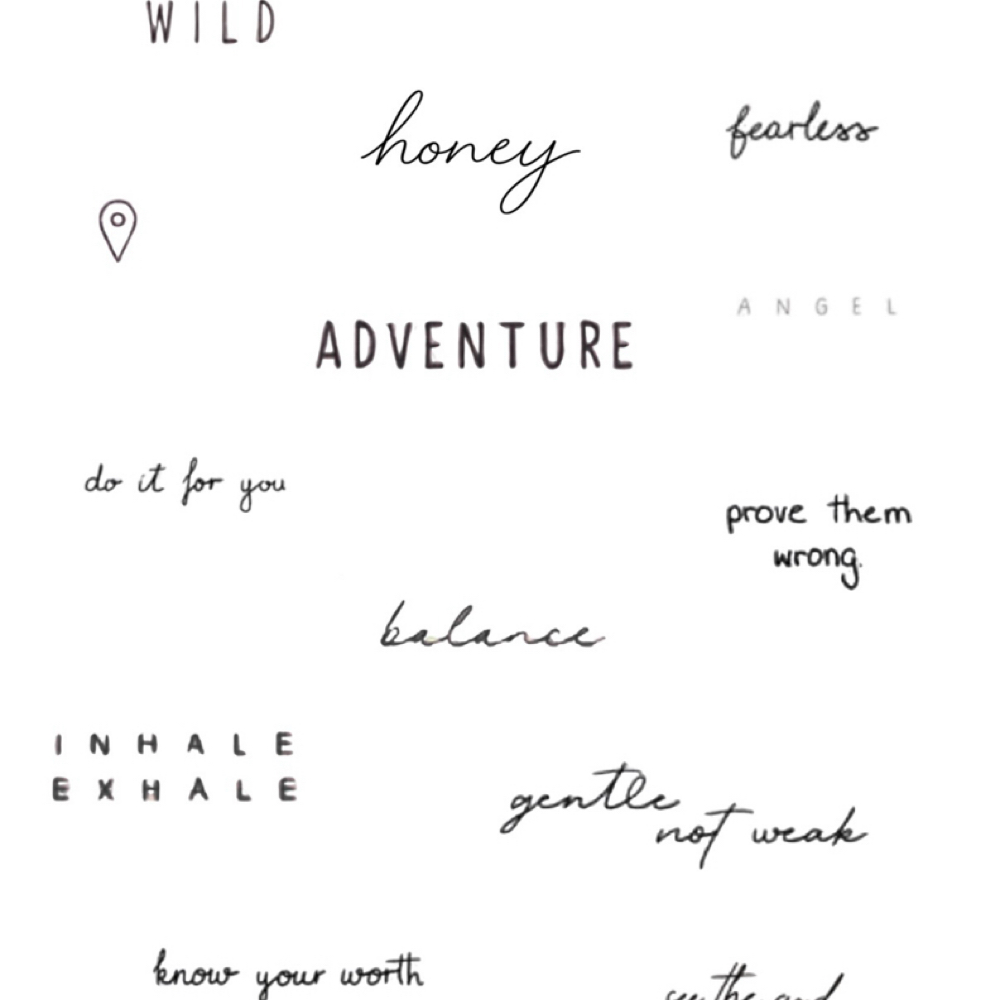 WILD
honey
fearless
ANGEL
ADVENTURE
do it for you
prove them
wrong.
balance
INHALE
EXHALE
gentle
not weak
know your worth